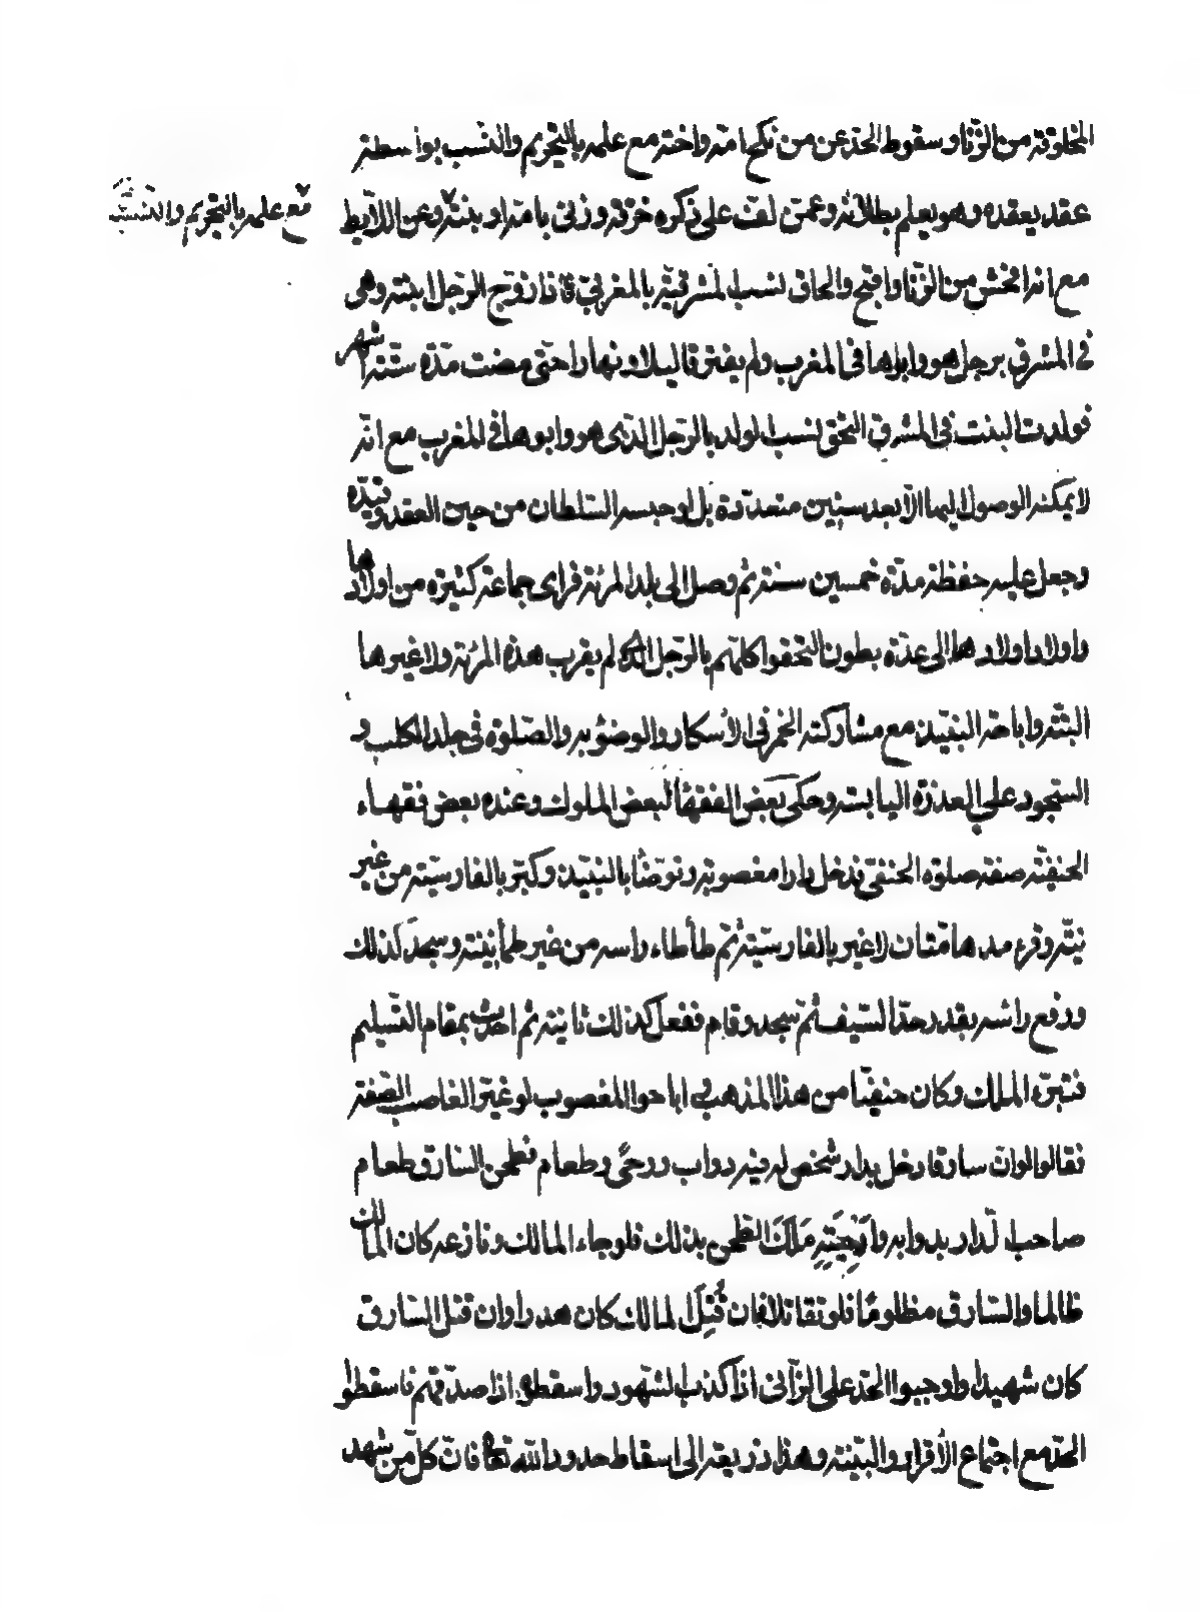 المخلوقة من الزنا وسقوط الحد عن من نكح امه واخته مع علمه بالتحريم والنسب بواسطة
عقد يعقده وهو يعلم بطلانه وعمن لف على ذكره خرقة وزنى بامه او بنته وعن اللايط
مع علمه بالتحريم والنسب
مع انه افحش من الزنا واقبح والحاق نسب المشرقية بالمغربي فاذا زوج الرجل ابنته وهى
فى المشرق برجل هو وابوها فى المغرب ولم يفترقا ليلا ونهارا حتى مضت مدة ستة اشهر
فولدت البنت فى المشرق التحق نسب الولد بالرجل الذى هو وابوها فى المغرب مع انه
لا يمكنه الوصول اليها الا بعد سنين متعددة بل لو حبسه السلطان من حين العقد وقيده
وجعل عليه حفظة مدة خمسين سنة ثم وصل الى بلد المرئة فراى جماعة كثيرة من اولادها
واولاد اولادها الى عدة بطون التحقوا كلهم بالرجل الذى لم يقرب هذه المرئة ولا غيرها
البتة واباحة النبيذ مع مشاركته الخمر فى الاسكار والوضوء به والصلوة فى جلد الكلب و
السجود على العذرة اليابسة وحكى بعض الفقهاء لبعض الملوك وعنده بعض فقهاء
الحنفية صفة صلوة الحنفى فدخل دارا مغصوبة وتوضأ بالنبيذ وكبر بالفارسية من غير
نية وقرء مدهامتان لا غير بالفارسية ثم طأطاء راسه من غير طمأنينة وسجد كذلك
ورفع راسه بقدر حد السيف ثم سجد وقام ففعل كذلك ثانية ثم احدث بمقام التسليم
فتبرء الملك وكان حنفيا من هذا المذهب اباحوا المغصوب لو غير الغاصب الصفة
فقالوا لو ان سارقا دخل بدار شخص له فيه دواب ورحى وطعام فطحن السارق طعام
صاحب الدار بدوابه وارحيته ملك الطحن بذلك فلو جاء المالك ونازعه كان المالك
ظالما والسارق مظلوما فلو تقاتلا فان قتل المالك كان هدرا وان قتل السارق
كان شهيدا واوجبوا الحد على الزانى اذا كذب الشهود واسقطوه اذا صدقهم فاسقطوا
الحد مع اجتماع الأقرار والبينة وهذا ذريعة الى اسقاط حدود الله تعا فان كل من شهد